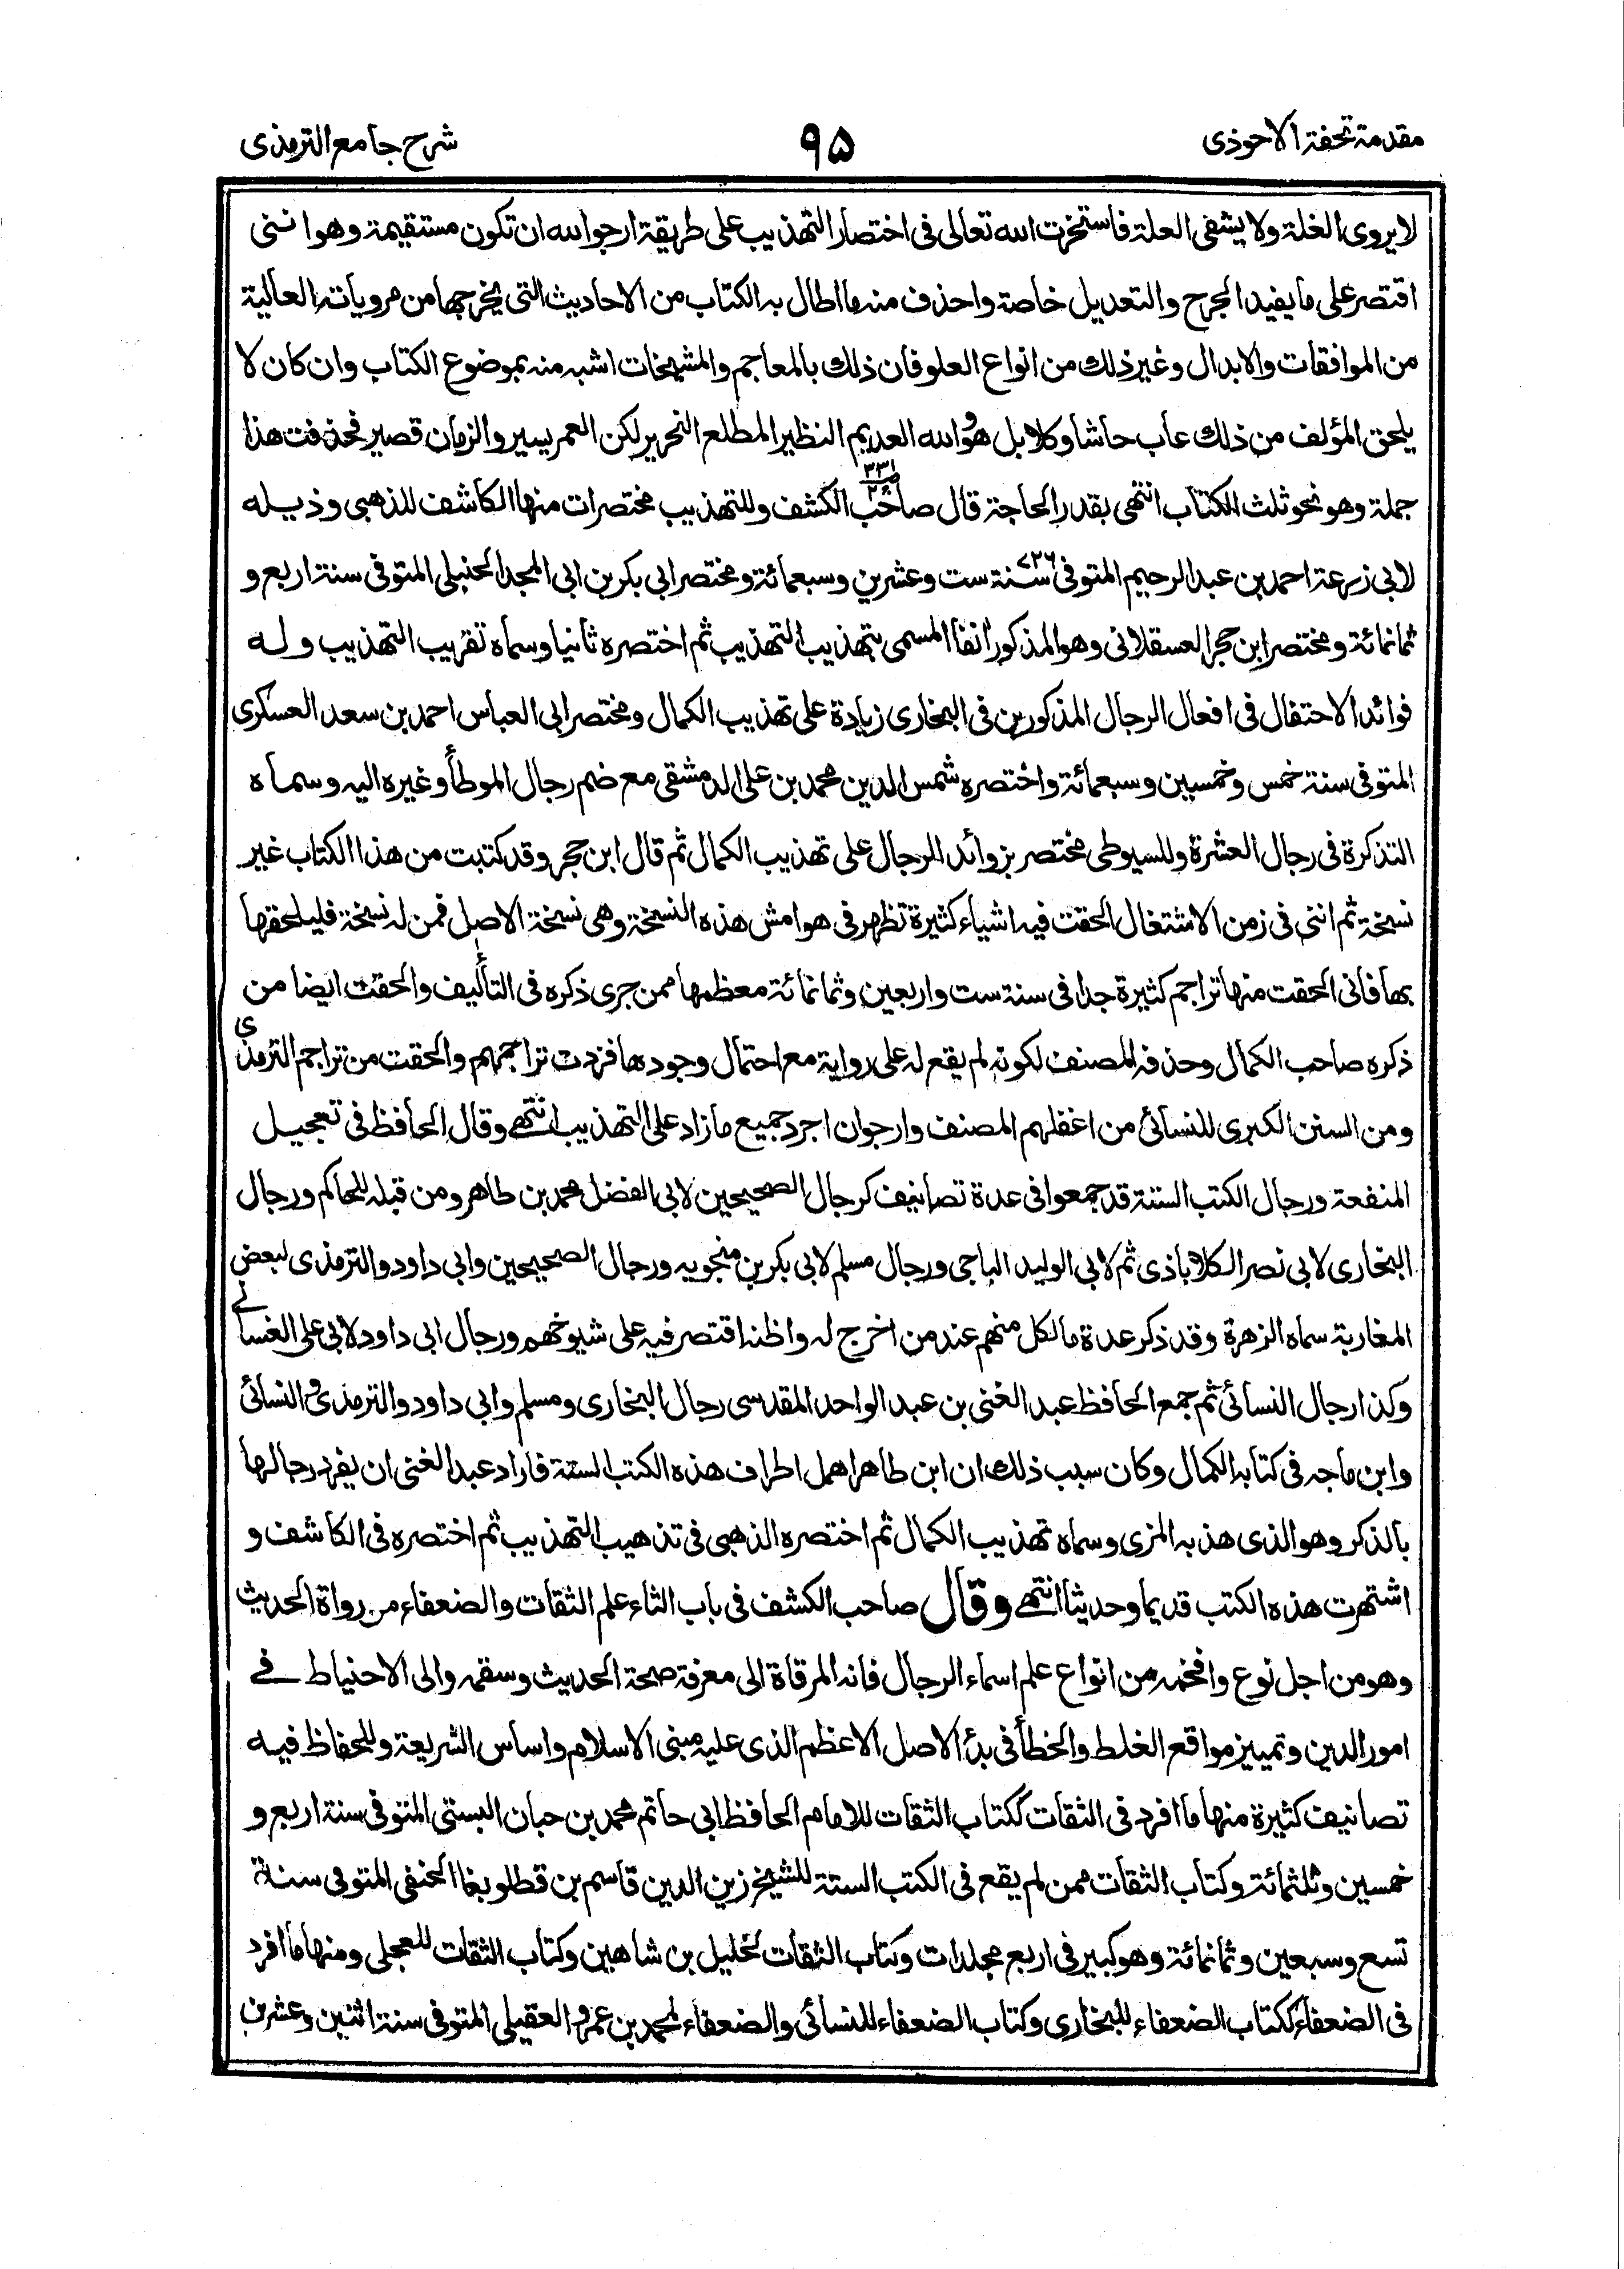 مقدمة تحفة الاحوذى
٩٥
شرح جامع الترمذى
لا يروى الغلة ولا يشفى العلة فاستخرت الله تعالى فى اختصار التهذيب على طريقة ارجو الله ان تكون مستقيمة وهو اننى
اقتصر على ما يفيد الجرح والتعديل خاصة واحذف منه ما اطال به الكتاب من الاحاديث التى يخرجها من مروياته العالية
من الموافقات والابدال وغير ذلك من انواع العلو فان ذلك بالمعاجم والمشيخات اشبه منه بموضوع الكتاب وان كان لا
يلحق المؤلف من ذلك عاب حاشا وكلا بل هو والله العديم النظير المطلع النحرير لكن العمر يسير والزمان قصير فحذفت هذا
جملة وهو نحو ثلث الكتاب انتهى بقدر الحاجة قال صاحب الكشف وللتهذيب مختصرات منها الكاشف للذهبى وذيله
لابى زرعة احمد بن عبد الرحيم المتوفى ٧٢٦ سنة ست وعشرين وسبعمائة ومختصر ابى بكر بن ابى المجد الحنبلى المتوفى سنة اربع و
ثمانمائة ومختصر ابن حجر العسقلانى وهو المذكور انفا المسمى بتهذيب التهذيب ثم اختصره ثانيا وسماه تقريب التهذيب وله
فوائد الاحتفال فى افعال الرجال المذكورين فى البخارى زيادة على تهذيب الكمال ومختصر ابى العباس احمد بن سعد العسكرى
المتوفى سنة خمس وخمسين وسبعمائة واختصره شمس الدين محمد بن على الدمشقى مع ضم رجال الموطأ وغيره اليه وسماه
التذكرة فى رجال العشرة وللسيوطى مختصر بزوائد الرجال على تهذيب الكمال ثم قال ابن حجر وقد كتبت من هذا الكتاب غير
نسخة ثم اننى فى زمن الاشتغال الحقت فيه اشياء كثيرة تظهر فى هوامش هذه النسخة وهى نسخة الاصل فمن له نسخة فليلحقها
بها فانى الحقت منها تراجم كثيرة جدا فى سنة ست واربعين وثمانمائة معظمها ممن جرى ذكره فى التأليف والحقت ايضا من
ذكره صاحب الكمال وحذفه المصنف لكونه لم يقع له على رواية مع احتمال وجودها فزدت تراجمهم والحقت من تراجم الترمذى
ومن السنن الكبرى للنسائى من اغفلهم المصنف وارجو ان اجرد جميع ما زاد على التهذيب انتهى وقال الحافظ فى تعجيل
المنفعة ورجال الكتب الستة قد جمعوا فى عدة تصانيف كرجال الصحيحين لابى الفضل محمد بن طاهر ومن قبله للحاكم ورجال
البخارى لابى نصر الكلاباذى ثم لابى الوليد الباجى ورجال مسلم لابى بكر بن منجويه ورجال الصحيحين وابى داود والترمذى لبعض
المغاربة سماه الزهرة وقد ذكر عدة ما لكل منهم عند من اخرج له واظنه اقتصر فيه على شيوخهم ورجال ابى داود لابى على الغسانى
وكذا رجال النسائى ثم جمع الحافظ عبد الغنى بن عبد الواحد المقدسى رجال البخارى ومسلم وابى داود والترمذى والنسائى
وابن ماجه فى كتابه الكمال وكان سبب ذلك ان ابن طاهر اهمل اطراف هذه الكتب الستة فاراد عبد الغنى ان يفرد رجالها
بالذكر وهو الذى هذبه المزى وسماه تهذيب الكمال ثم اختصره الذهبى فى تذهيب التهذيب ثم اختصره فى الكاشف و
اشتهرت هذه الكتب قديما وحديثا انتهى وقال صاحب الكشف فى باب الثاء علم الثقات والضعفاء من رواة الحديث
وهو من اجل نوع وافخمه من انواع علم اسماء الرجال فانه المرقاة الى معرفة صحة الحديث وسقمه والى الاحتياط فى
امور الدين وتمييز مواقع الغلط والخطأ فى بدأ الاصل الاعظم الذى عليه مبنى الاسلام واساس الشريعة وللحفاظ فيه
تصانيف كثيرة منها ما افرد فى الثقات ككتاب الثقات للامام الحافظ ابى حاتم محمد بن حبان البستى المتوفى سنة اربع و
خمسين وثلثمائة وكتاب الثقات ممن لم يقع فى الكتب الستة للشيخ زين الدين قاسم بن قطلوبغا الحنفى المتوفى سنة
تسع وسبعين وثمانمائة وهو كبير فى اربع مجلدات وكتاب الثقات لخليل بن شاهين وكتاب الثقات للعجلى ومنها ما افرد
فى الضعفاء ككتاب الضعفاء للبخارى وكتاب الضعفاء للنسائى والضعفاء لمحمد بن عمرو العقيلى المتوفى سنة اثنين وعشرين